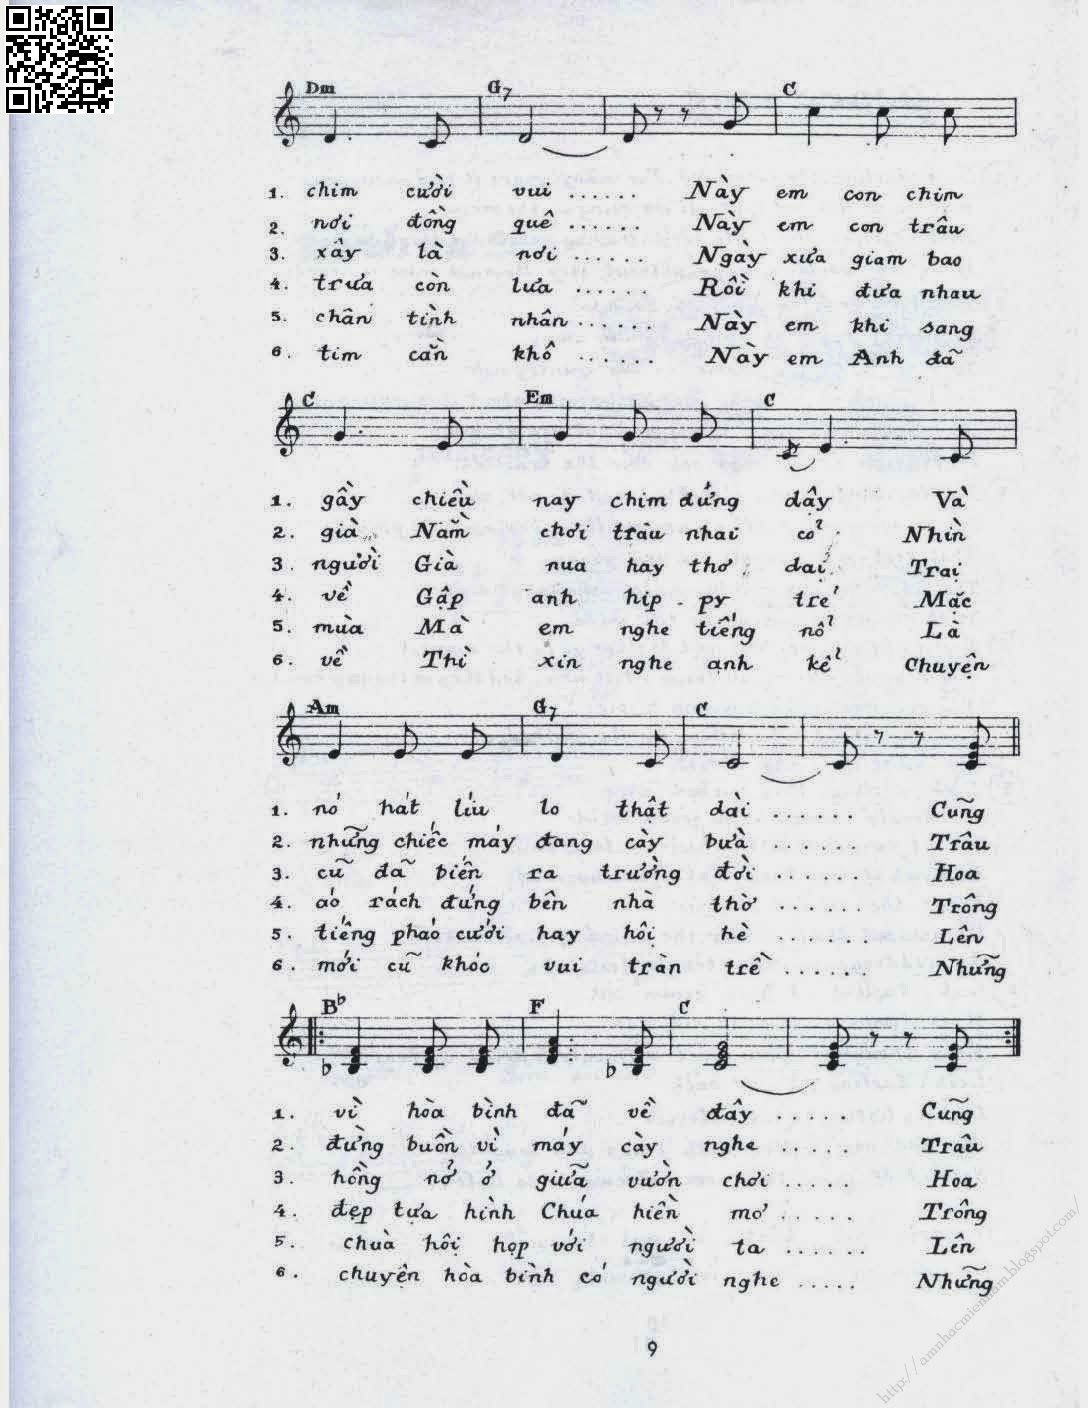 Dm G7 C
1. chim cười vui ...... Này em con chim
2. nơi đồng quê ...... Này em con trâu
3. xây là nơi ...... Ngày xưa giam bao
4. trưa còn lưa ...... Rồi khi đưa nhau
5. chân tình nhân ...... Này em khi sang
6. tim cằn khô ...... Này em Anh đã
C Em C
1. gầy chiều nay chim đứng dậy Và
2. già Nằm chơi trâu nhai cỏ Nhìn
3. người Già nua hay thơ dại Trại
4. về Gặp anh hip-py trẻ Mặc
5. mùa Mà em nghe tiếng nổ Là
6. về Thì xin nghe anh kể Chuyện
Am G7 C
1. nó hát líu lo thật dài ...... Cũng
2. những chiếc máy đang cày bừa ...... Trâu
3. cũ đã biến ra trường đời ...... Hoa
4. áo rách đứng bên nhà thờ ...... Trông
5. tiếng pháo cưới hay hội hè ...... Lên
6. mới cũ khóc vui tràn trề ...... Những
Bb F C
1. vì hòa bình đã về đây ..... Cũng
2. đừng buồn vì máy cày nghe ..... Trâu
3. hồng nở ở giữa vườn chơi ..... Hoa
4. đẹp tựa hình Chúa hiền mơ ..... Trông
5. chùa hội họp với người ta ...... Lên
6. chuyện hòa bình có người nghe ..... Những
9
http://amnhacmiennam.blogspot.com/